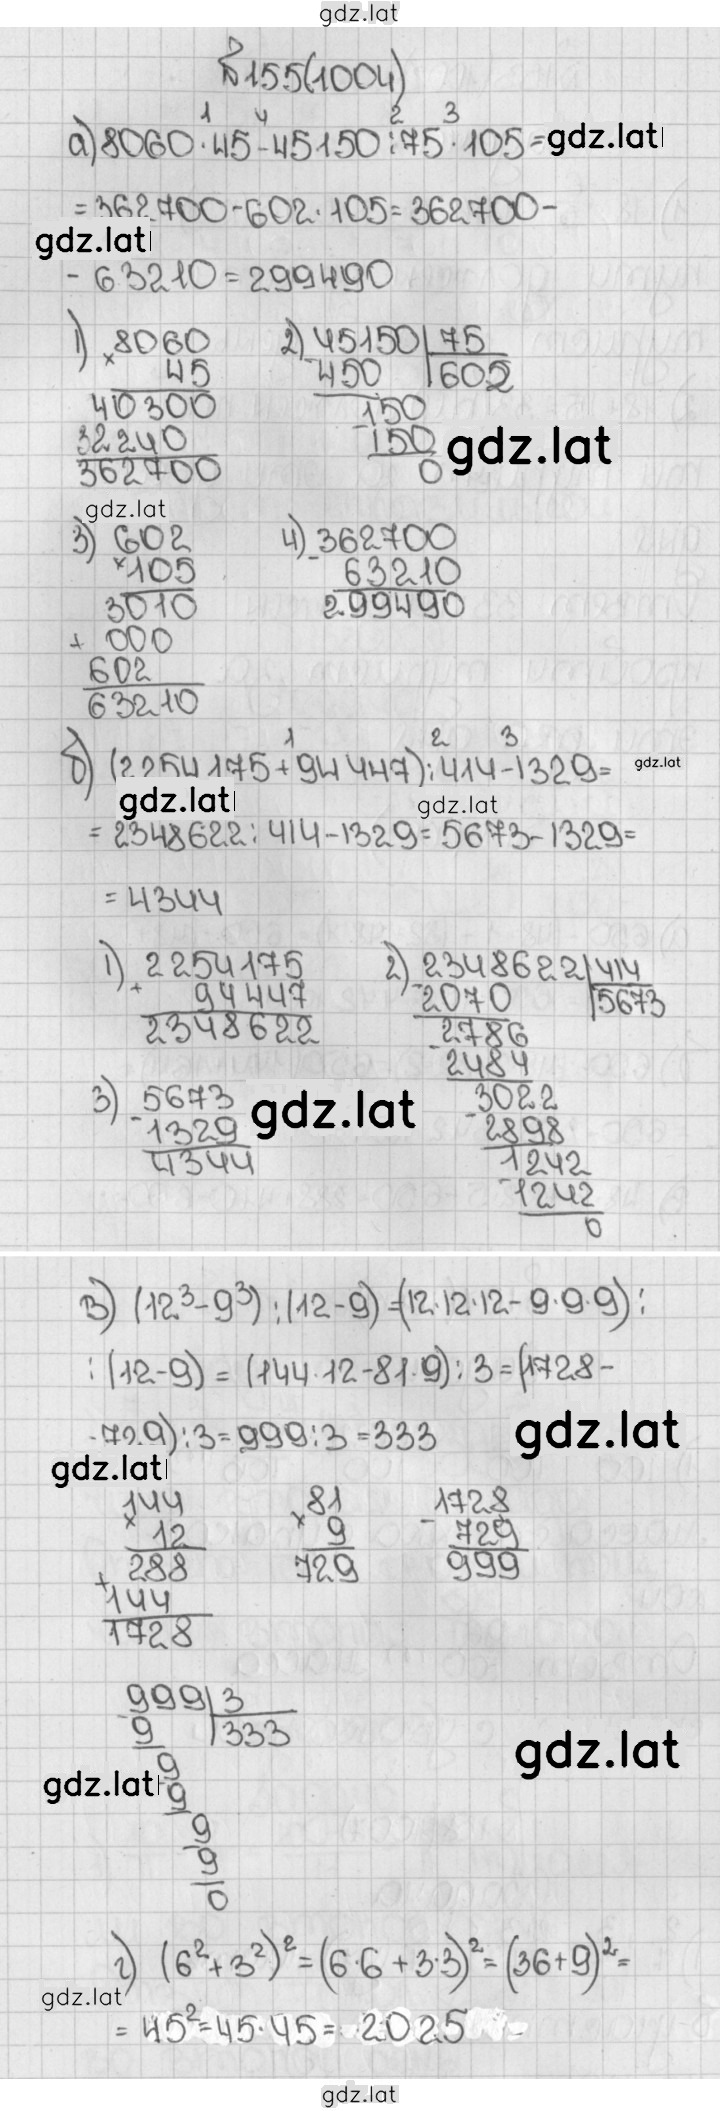 gdz.lat
№155(1004)
1 4 2 3
а) 8060·45-45150:75·105= gdz.lat
=362700-602·105=362700-
gdz.lat
-63210=299490
1) 8060 2) 45150 75
× 45 -450 602
40300 -150
32240 150 gdz.lat
362700 0
gdz.lat
3) 602 4) 362700
×105 - 63210
3010 299490
+ 000
602
63210
1 2 3
б) (2254175+94447):414-1329= gdz.lat
gdz.lat gdz.lat
=2348622:414-1329=5673-1329=
=4344
1) 2254175 2) 2348622 414
+ 94447 -2070 5673
2348622 -2786
2484
3) 5673 gdz.lat -3022
-1329 2898
4344 -1242
1242
0
в) (12³-9³):(12-9)=(12·12·12-9·9·9):
:(12-9)=(144·12-81·9):3=(1728-
-729):3=999:3=333 gdz.lat
gdz.lat
144 81 1728
× 12 × 9 - 729
288 729 999
+
144
1728
999 3
-9 333
9 gdz.lat
gdz.lat -9
9
-9
0
г) (6²+3²)²=(6·6+3·3)²=(36+9)²=
gdz.lat
=45²=45·45= 2025
gdz.lat